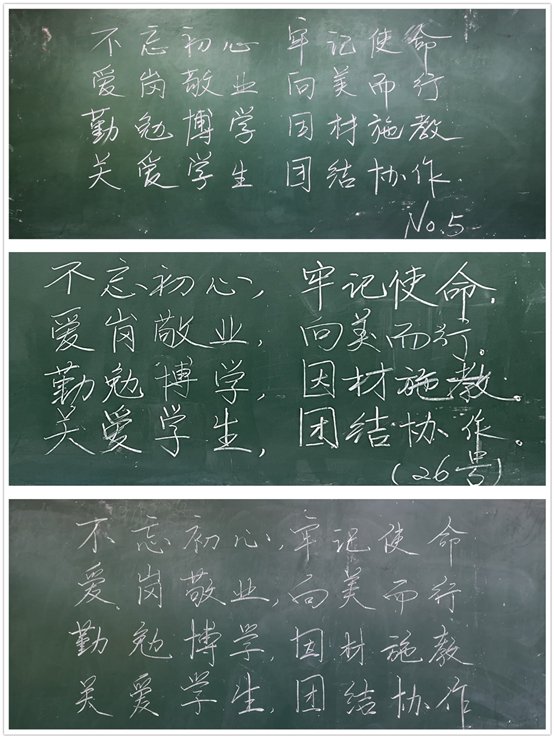 不忘初心 牢记使命
爱岗敬业 向美而行
勤勉博学 因材施教
关爱学生 团结协作
No.5
不忘初心, 牢记使命.
爱岗敬业, 向美而行.
勤勉博学, 因材施教.
关爱学生, 团结协作。
(26号)
不忘初心,牢记使命
爱岗敬业,向美而行
勤勉博学,因材施教
关爱学生,团结协作